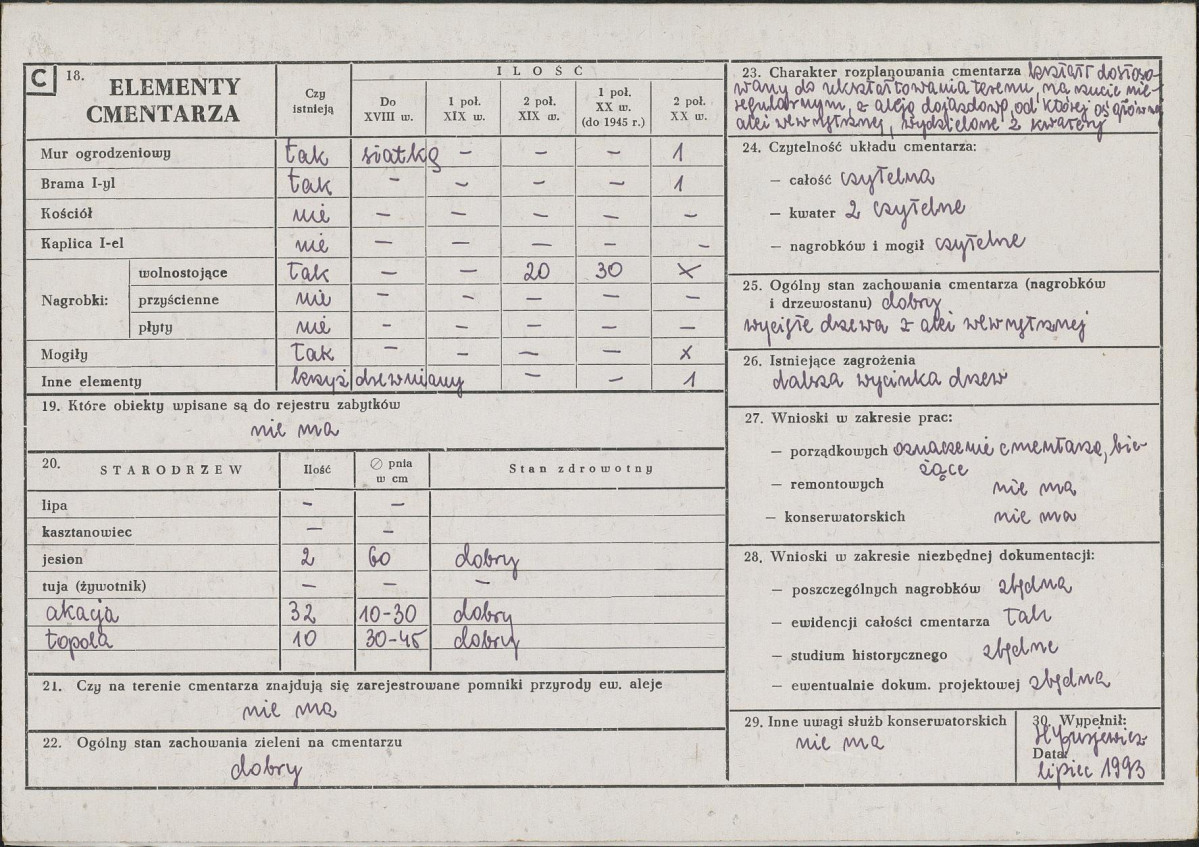 C 18. ELEMENTY CMENTARZA
Czy istnieją
ILOŚĆ
Do XVIII w.
1 poł. XIX w.
2 poł. XIX w.
1 poł. XX w. (do 1945 r.)
2 poł. XX w.
Mur ogrodzeniowy tak siatka – – – 1
Brama I-yl tak – – – – 1
Kościół nie – – – – –
Kaplica I-el nie – – – – –
Nagrobki:
wolnostojące tak – – 20 30 x
przyścienne nie – – – – –
płyty nie – – – – –
Mogiły tak – – – – x
Inne elementy krzyż drewniany – – 1
19. Które obiekty wpisane są do rejestru zabytków
nie ma
20. STARODRZEW Ilość ∅ pnia w cm Stan zdrowotny
lipa – –
kasztanowiec – –
jesion 2 60 dobry
tuja (żywotnik) – – –
akacja 32 10-30 dobry
topola 10 30-45 dobry
21. Czy na terenie cmentarza znajdują się zarejestrowane pomniki przyrody ew. aleje
nie ma
22. Ogólny stan zachowania zieleni na cmentarzu
dobry
23. Charakter rozplanowania cmentarza kształt dostoso-
wany do ukształtowania terenu, na rzucie nie-
regularnym, z aleją dojazdową, od której oś główna
alei wewnętrznej, wydzielone 2 kwatery
24. Czytelność układu cmentarza:
– całość czytelna
– kwater 2 czytelne
– nagrobków i mogił czytelne
25. Ogólny stan zachowania cmentarza (nagrobków
i drzewostanu) dobry
wycięte drzewa z alei wewnętrznej
26. Istniejące zagrożenia
dalsza wycinka drzew
27. Wnioski w zakresie prac:
– porządkowych oznaczenie cmentarza, bie-
żące
– remontowych nie ma
– konserwatorskich nie ma
28. Wnioski w zakresie niezbędnej dokumentacji:
– poszczególnych nagrobków zbędna
– ewidencji całości cmentarza tak
– studium historycznego zbędne
– ewentualnie dokum. projektowej zbędna
29. Inne uwagi służb konserwatorskich
nie ma
30. Wypełnił:
Data:
lipiec 1993